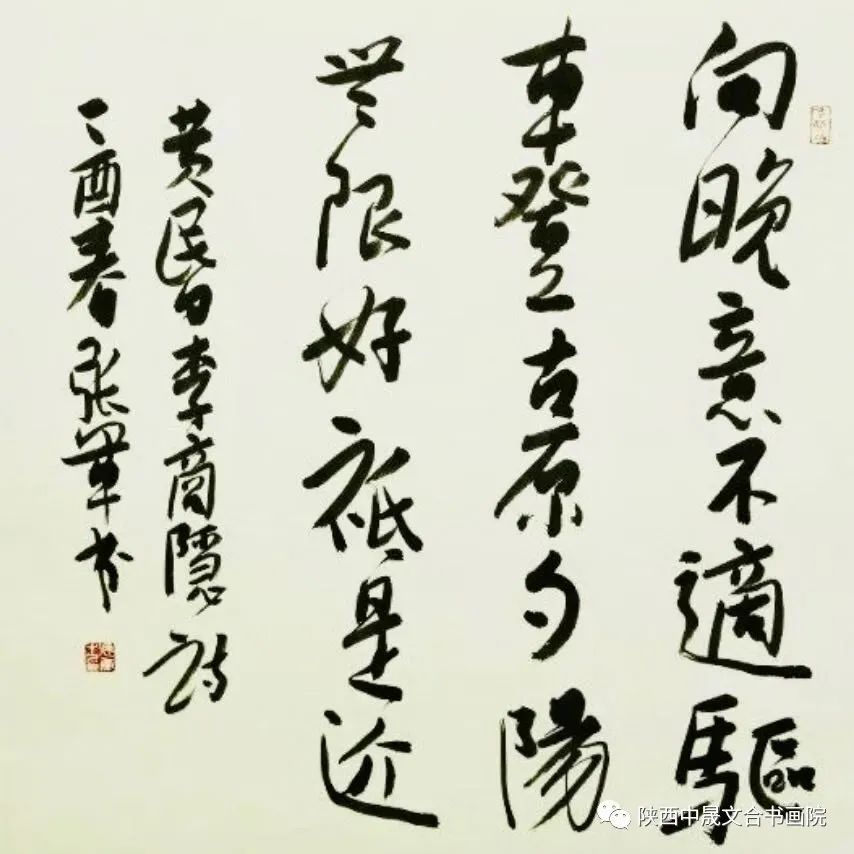 向晚意不適驅
車登古原夕陽
無限好祗是近
黄昬李商隱詩
丁酉春張書
陕西中晟文合书画院